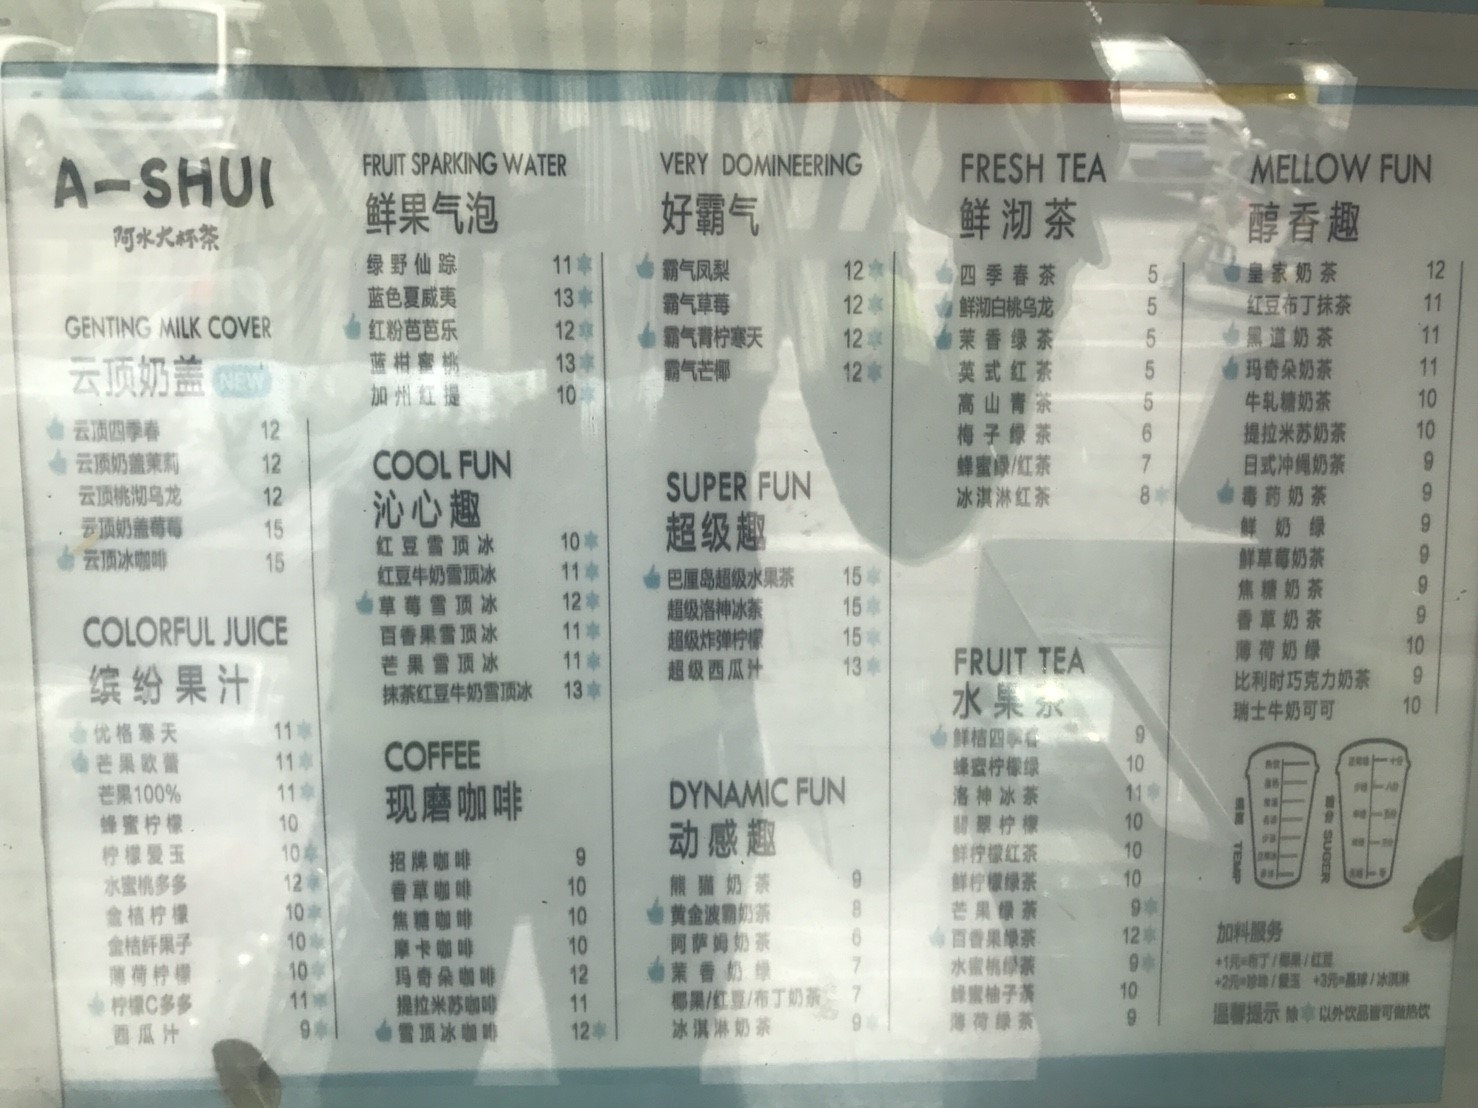 A-SHUI
阿水大杯茶
GENTING MILK COVER
云顶奶盖 NEW
云顶四季春 12
云顶奶盖茉莉 12
云顶桃沏乌龙 12
云顶奶盖莓莓 15
云顶冰咖啡 15
COLORFUL JUICE
缤纷果汁
优格寒天 11
芒果欧蕾 11
芒果100% 11
蜂蜜柠檬 10
柠檬爱玉 10
水蜜桃多多 12
金桔柠檬 10
金桔纤果子 10
薄荷柠檬 10
柠檬C多多 11
西瓜汁 9
FRUIT SPARKING WATER
鲜果气泡
绿野仙踪 11
蓝色夏威夷 13
红粉芭芭乐 12
蓝柑蜜桃 13
加州红提 10
COOL FUN
沁心趣
红豆雪顶冰 10
红豆牛奶雪顶冰 11
草莓雪顶冰 12
百香果雪顶冰 11
芒果雪顶冰 11
抹茶红豆牛奶雪顶冰 13
COFFEE
现磨咖啡
招牌咖啡 9
香草咖啡 10
焦糖咖啡 10
摩卡咖啡 10
玛奇朵咖啡 12
提拉米苏咖啡 11
雪顶冰咖啡 12
VERY DOMINEERING
好霸气
霸气凤梨 12
霸气草莓 12
霸气青柠寒天 12
霸气芒椰 12
SUPER FUN
超级趣
巴厘岛超级水果茶 15
超级洛神冰茶 15
超级炸弹柠檬 15
超级西瓜汁 13
DYNAMIC FUN
动感趣
熊猫奶茶 9
黄金波霸奶茶 8
阿萨姆奶茶 6
茉香奶绿 7
椰果/红豆/布丁奶茶 7
冰淇淋奶茶 9
FRESH TEA
鲜沏茶
四季春茶 5
鲜沏白桃乌龙 5
茉香绿茶 5
英式红茶 5
高山青茶 5
梅子绿茶 6
蜂蜜绿/红茶 7
冰淇淋红茶 8
FRUIT TEA
水果茶
鲜桔四季春 9
蜂蜜柠檬绿 10
洛神冰茶 11
翡翠柠檬 10
鲜柠檬红茶 10
鲜柠檬绿茶 10
芒果绿茶 9
百香果绿茶 12
水蜜桃绿茶 9
蜂蜜柚子茶 10
薄荷绿茶 9
MELLOW FUN
醇香趣
皇家奶茶 12
红豆布丁抹茶 11
黑道奶茶 11
玛奇朵奶茶 11
牛轧糖奶茶 10
提拉米苏奶茶 10
日式冲绳奶茶 9
毒药奶茶 9
鲜奶绿 9
鲜草莓奶茶 9
焦糖奶茶 9
香草奶茶 9
薄荷奶绿 10
比利时巧克力奶茶 9
瑞士牛奶可可 10
TEMP
SUGER
加料服务
+1元=布丁/椰果/红豆
+2元=珍珠/爱玉 +3元=晶球/冰淇淋
温馨提示 除 以外饮品皆可做热饮